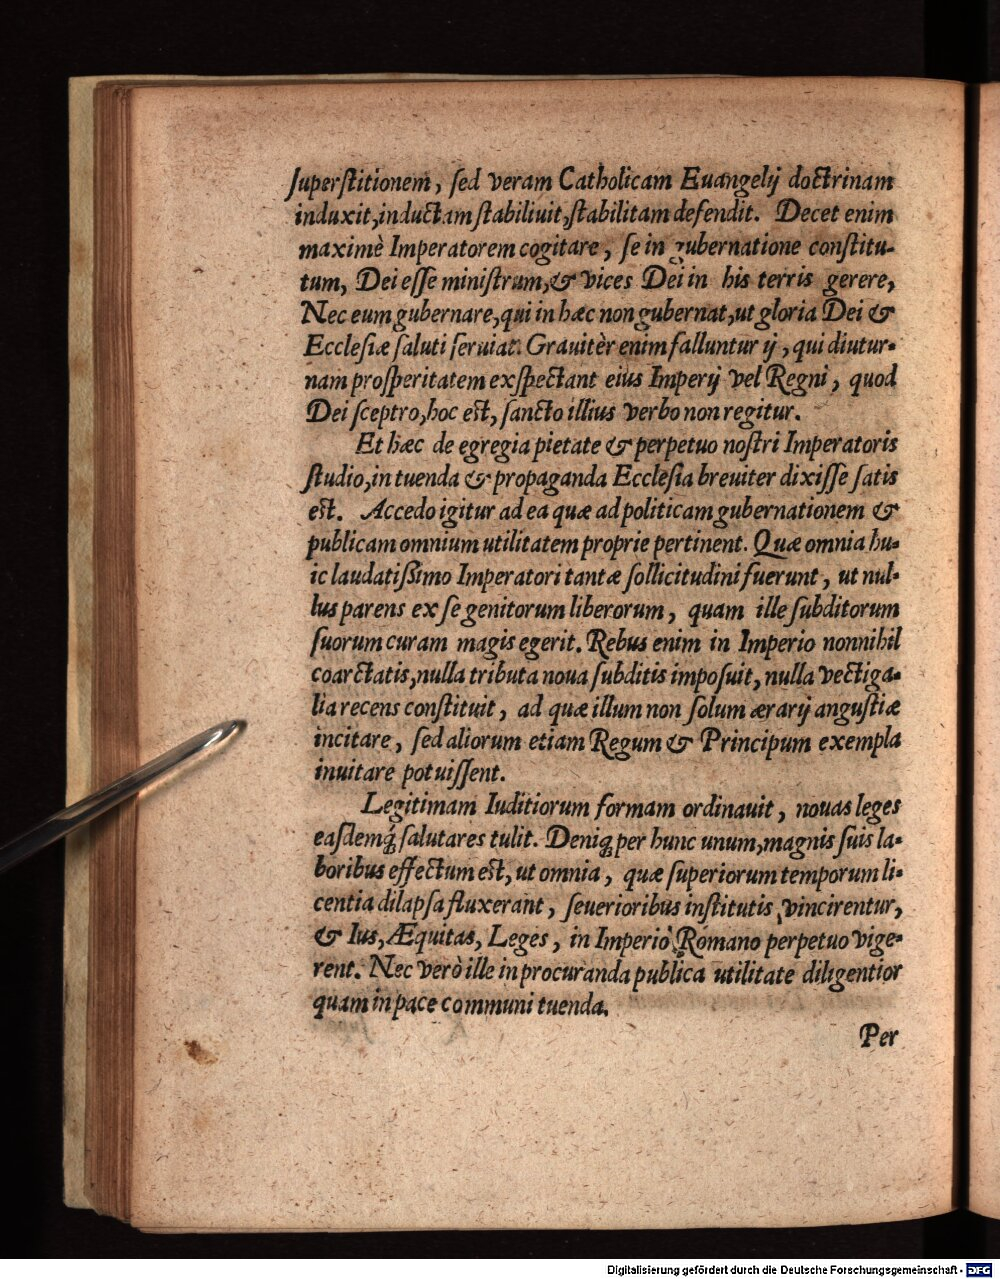 ſuperſtitionem, ſed veram Catholicam Euangelij doctrinam
induxit, inductam ſtabiliuit, ſtabilitam defendit. Decet enim
maximè Imperatorem cogitare, ſe in gubernatione conſtitu-
tum, Dei eſſe miniſtrum, & vices Dei in his terris gerere,
Nec eum gubernare, qui in hæc non gubernat, ut gloria Dei &
Eccleſiæ ſaluti ſeruiat. Grauitèr enim falluntur ij, qui diutur-
nam proſperitatem exſpectant eius Imperij vel Regni, quod
Dei ſceptro, hoc eſt, ſancto illius verbo non regitur.
Et hæc de egregia pietate & perpetuo noſtri Imperatoris
ſtudio, in tuenda & propaganda Eccleſia breuiter dixiſſe ſatis
eſt. Accedo igitur ad ea quæ ad politicam gubernationem &
publicam omnium utilitatem proprie pertinent. Quæ omnia hu-
ic laudatiſſimo Imperatori tantæ ſollicitudini fuerunt, ut nul-
lus parens ex ſe genitorum liberorum, quam ille ſubditorum
ſuorum curam magis egerit. Rebus enim in Imperio nonnihil
coarctatis, nulla tributa noua ſubditis impoſuit, nulla vectiga-
lia recens conſtituit, ad quæ illum non ſolum ærarij anguſtiæ
incitare, ſed aliorum etiam Regum & Principum exempla
inuitare potuiſſent.
Legitimam Iuditiorum formam ordinauit, nouas leges
eaſdemq́; ſalutares tulit. Deniq; per hunc unum, magnis ſuis la-
boribus effectum eſt, ut omnia, quæ ſuperiorum temporum li-
centia dilapſa fluxerant, ſeuerioribus inſtitutis vincirentur,
& Ius, Æquitas, Leges, in Imperio Romano perpetuo vige-
rent. Nec verò ille in procuranda publica utilitate diligentior
quam in pace communi tuenda.
Per
Digitalisierung gefördert durch die Deutsche Forschungsgemeinschaft - DFG